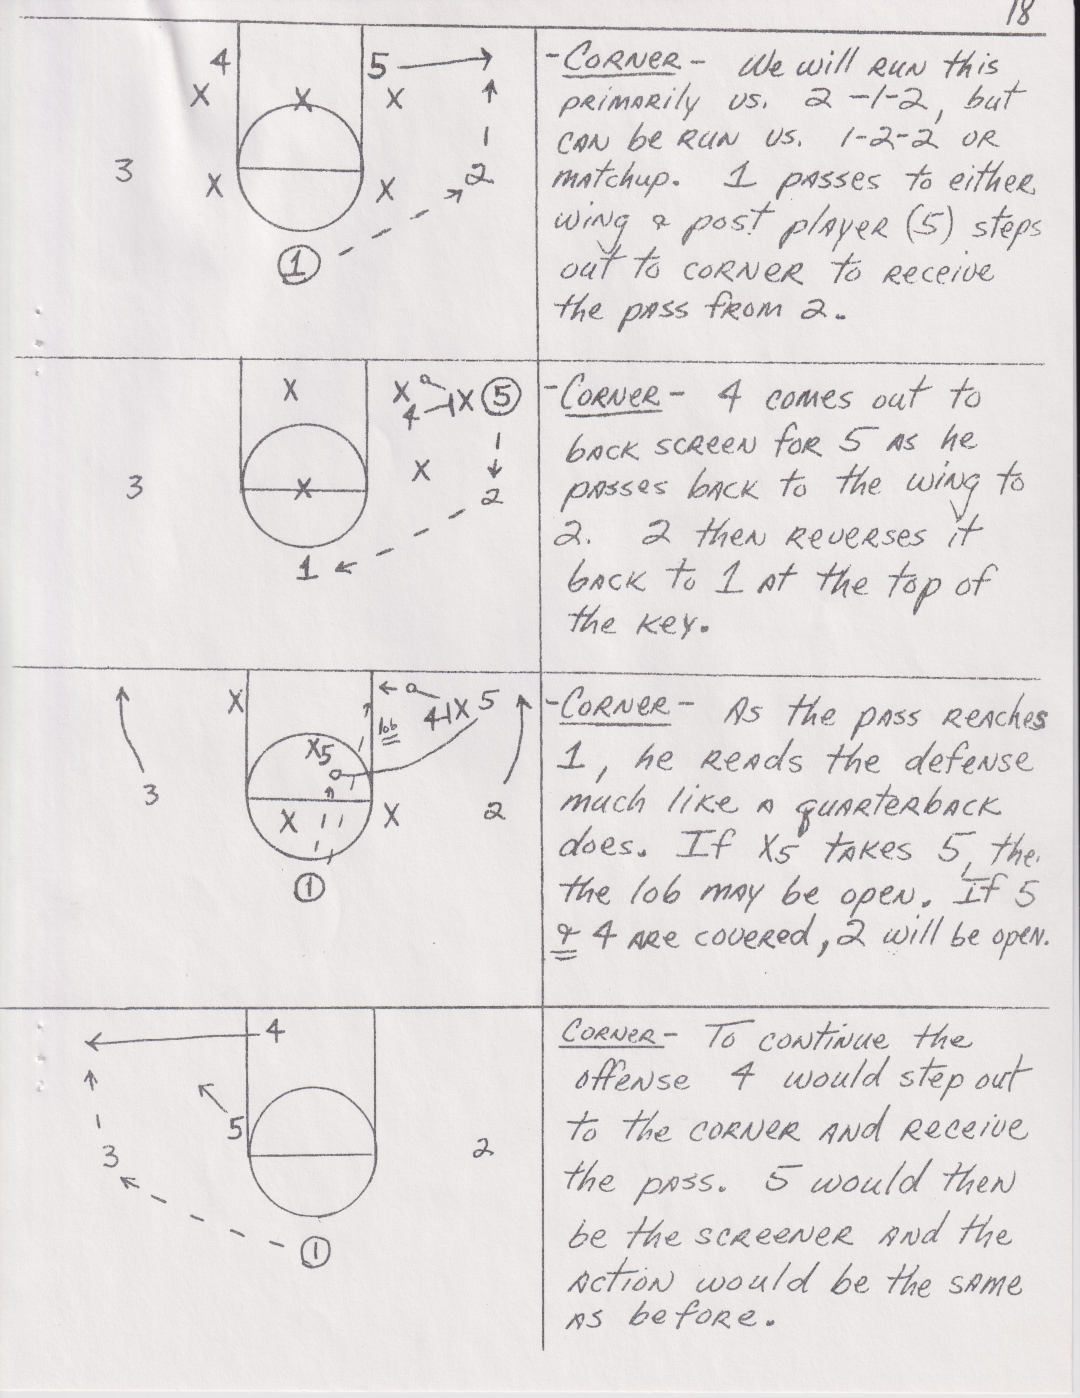 18
4
5
X
X
X
3
X
X
2
1
-Corner- We will run this
primarily vs. 2-1-2, but
can be run vs. 1-2-2 or
matchup. 1 passes to either
wing & post player (5) steps
out to corner to receive
the pass from 2.
X
X
4
X
5
X
3
X
2
1
-Corner- 4 comes out to
back screen for 5 as he
passes back to the wing to
2. 2 then reverses it
back to 1 at the top of
the key.
X
4
X
5
lob
X5
3
X
X
2
1
-Corner- As the pass reaches
1, he reads the defense
much like a quarterback
does. If X5 takes 5, the
the lob may be open. If 5
& 4 are covered, 2 will be open.
4
5
3
2
1
Corner- To continue the
offense 4 would step out
to the corner and receive
the pass. 5 would then
be the screener and the
action would be the same
as before.